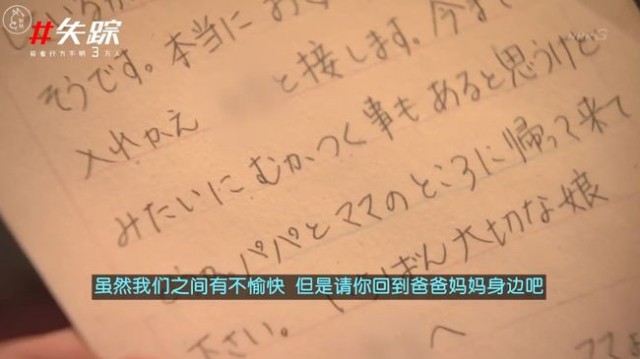 #失踪
若者行方不明3万人
そうです。本当に
と接します。今ま
入れかえ
みたいにむかつく事もあると思うけど
パパとママのところに帰って来て
下さい。
ばん大切な娘
へ
虽然我们之间有不愉快 但是请你回到爸爸妈妈身边吧